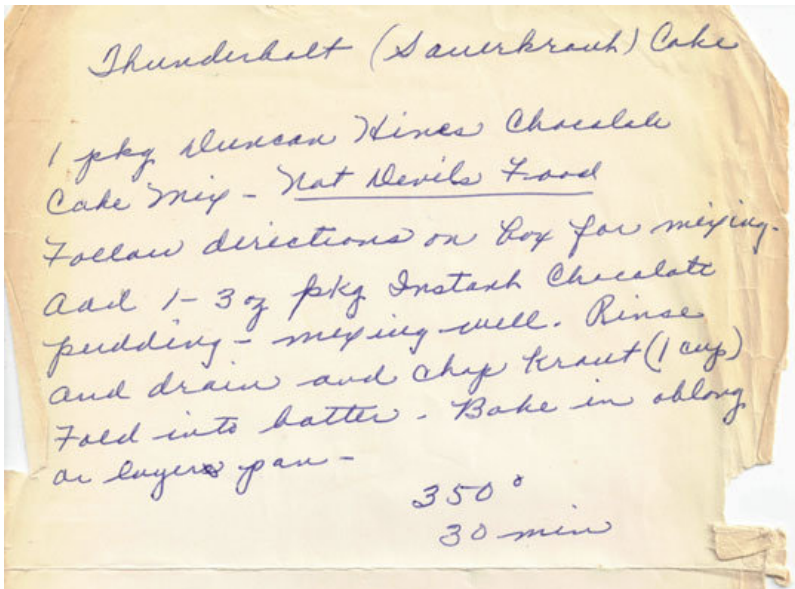 Thunderbolt (Sauerkraut) Cake
1 pkg Duncan Hines Chocolate
Cake Mix - Not Devils Food
Follow directions on box for mixing.
Add 1 - 3 oz pkg Instant Chocolate
pudding - mixing well. Rinse
and drain and chop Kraut (1 cup)
Fold into batter - Bake in oblong
or layers pan -
350°
30 min